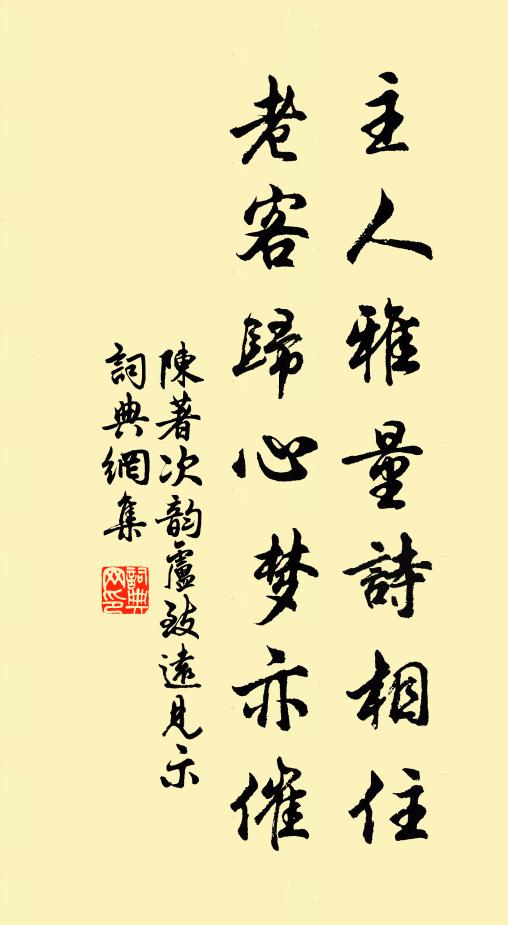 主人雅量詩相住
老客歸心梦亦催
陳著次韵盧致遠見示
詞典網集
詞典网印